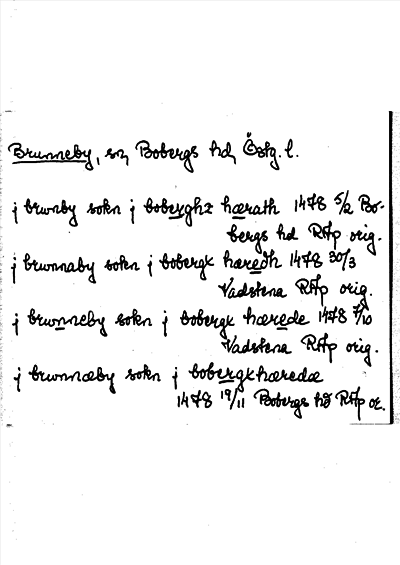 Brunneby, sn, Bobergs hd, Östg. l.
j brwnby sokn j boberghz hærath 1478 5/2 Bo-
bergs hd RAp orig.
j brwnnaby sokn j bobergx hæredh 1478 30/3
Vadstena RAp orig.
j brwnneby sokn j bobergx hærede 1478 7/10
Vadstena RAp orig.
j brwnnæby sokn j bobergxhæredæ
1478 19/11 Bobergs hd RAp or.